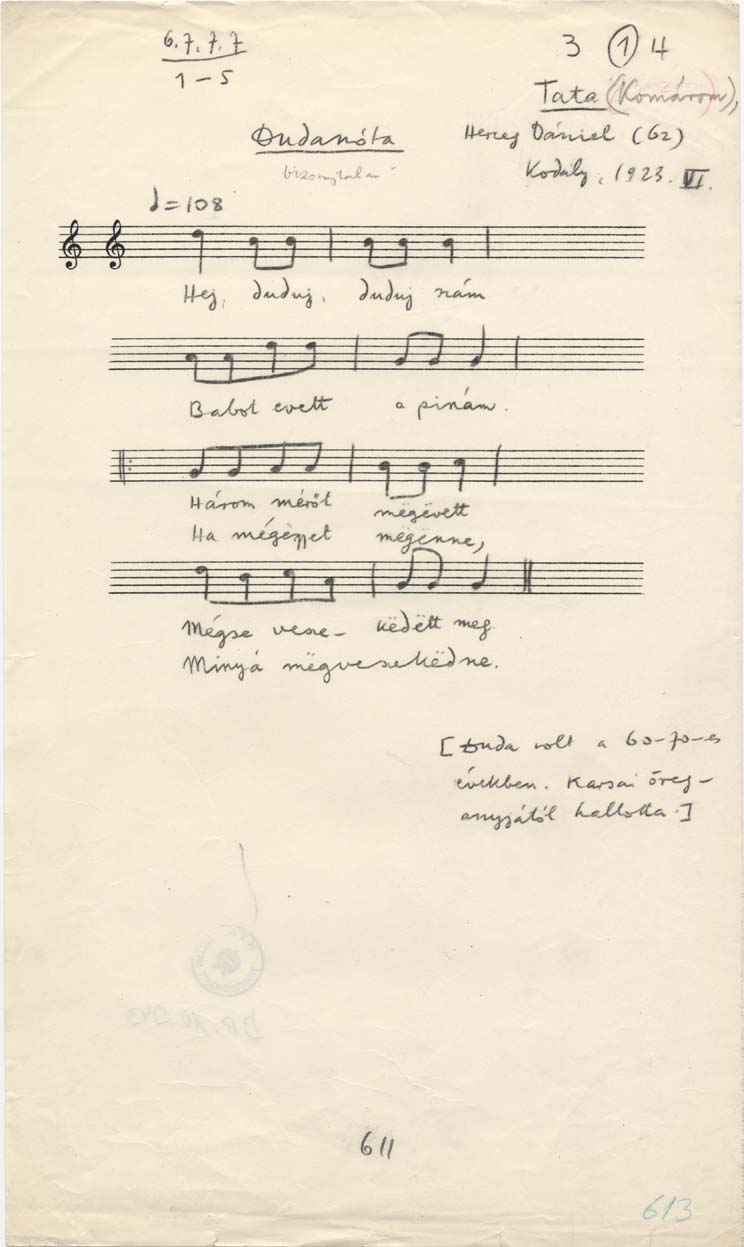 6.7.7.7
1-5
3 1 4
Tata (Komárom),
Dudanóta
Herceg Dániel (62)
bizonytalan:
Kodály, 1923. VI.
♩=108
Hej, duduj, duduj nám
Babot evett a pinám.
Három mérőt mëgëvett
Ha mégëgyet mëgënne,
Mégse vese- këdëtt meg
Minyá mëgvesekëdne.
[Duda volt a 60-70-es
években. Karsai öreg-
anyjától hallotta.]
611
613